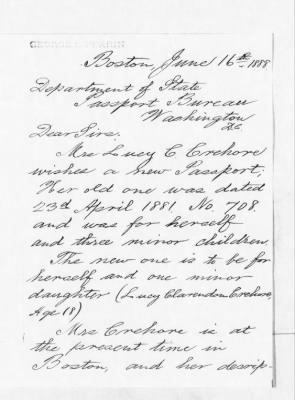 Boston, June 16th 1888
Department of State
Passport Bureau
Washington
D.C.
Dear Sirs.
Mrs Lucy C Crehore
wishes a new Passport;
Her old one was dated
23d April 1881 No. 708.
and was for herself
and three minor children.
The new one is to be for
herself and one minor
daughter (Lucy Clarendon Crehore,
Age 18)
Mrs Crehore is at
the present time in
Boston, and her descrip-